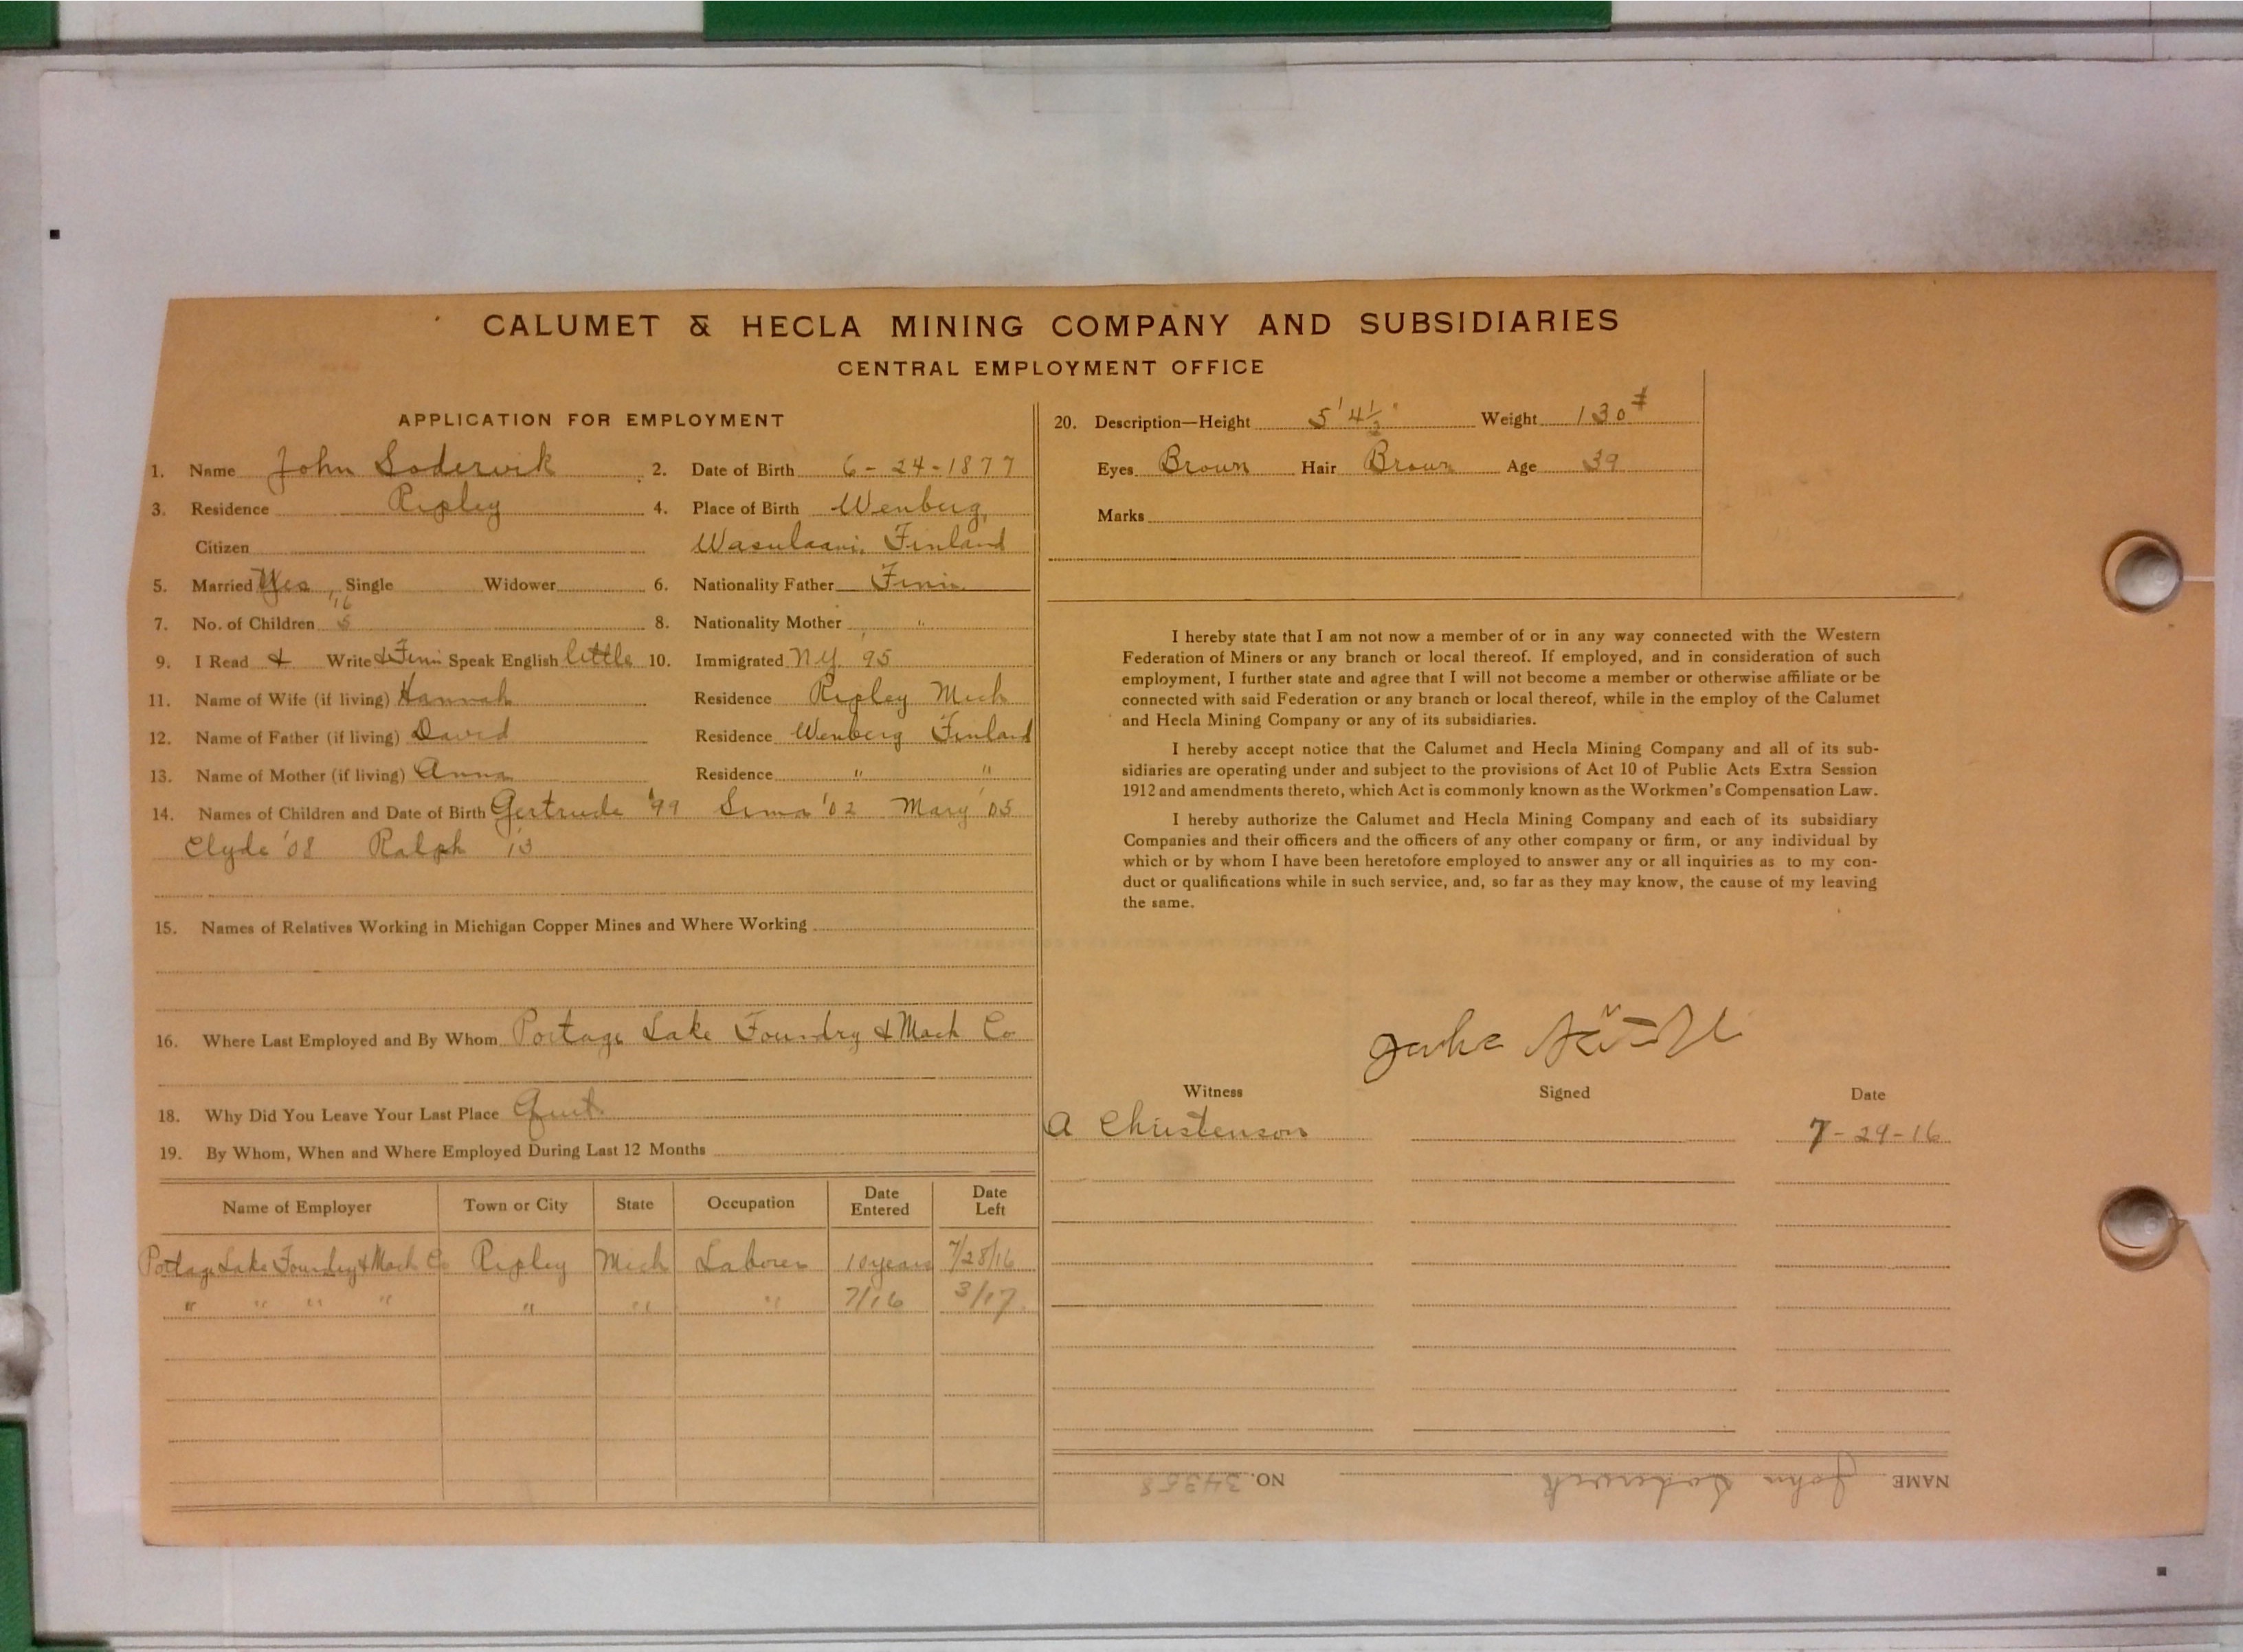 CALUMET & HECLA MINING COMPANY AND SUBSIDIARIES
CENTRAL EMPLOYMENT OFFICE
APPLICATION FOR EMPLOYMENT
1. Name John Sodervik 2. Date of Birth 6-24-1877
3. Residence Ripley 4. Place of Birth Wenberg,
Citizen Wasulaani, Finland
5. Married Yes, Single Widower 6. Nationality Father Finn
7. No. of Children 5 '16 8. Nationality Mother "
9. I Read & Write & Finn Speak English little 10. Immigrated N.Y. '95
11. Name of Wife (if living) Hannah Residence Ripley Mich
12. Name of Father (if living) David Residence Wenberg Finland
13. Name of Mother (if living) Anna Residence " "
14. Names of Children and Date of Birth Gertrude '99 '02 Mary '05
Clyde '08 Ralph '13
15. Names of Relatives Working in Michigan Copper Mines and Where Working
16. Where Last Employed and By Whom Portage Lake Foundry & Mach Co
18. Why Did You Leave Your Last Place Quit
19. By Whom, When and Where Employed During Last 12 Months
Name of Employer Town or City State Occupation Date Entered Date Left
Portage Lake Foundry & Mach Co Ripley Mich Laborer 10 years 7/28/16
" " " " " " " 7/16 3/17
20. Description—Height 5' 4½" Weight 130#
Eyes Brown Hair Brown Age 39
Marks
I hereby state that I am not now a member of or in any way connected with the Western
Federation of Miners or any branch or local thereof. If employed, and in consideration of such
employment, I further state and agree that I will not become a member or otherwise affiliate or be
connected with said Federation or any branch or local thereof, while in the employ of the Calumet
and Hecla Mining Company or any of its subsidiaries.
I hereby accept notice that the Calumet and Hecla Mining Company and all of its sub-
sidiaries are operating under and subject to the provisions of Act 10 of Public Acts Extra Session
1912 and amendments thereto, which Act is commonly known as the Workmen's Compensation Law.
I hereby authorize the Calumet and Hecla Mining Company and each of its subsidiary
Companies and their officers and the officers of any other company or firm, or any individual by
which or by whom I have been heretofore employed to answer any or all inquiries as to my con-
duct or qualifications while in such service, and, so far as they may know, the cause of my leaving
the same.
Witness Signed Date
A Christenson 7-29-16
NAME John Sodervik NO. 34358